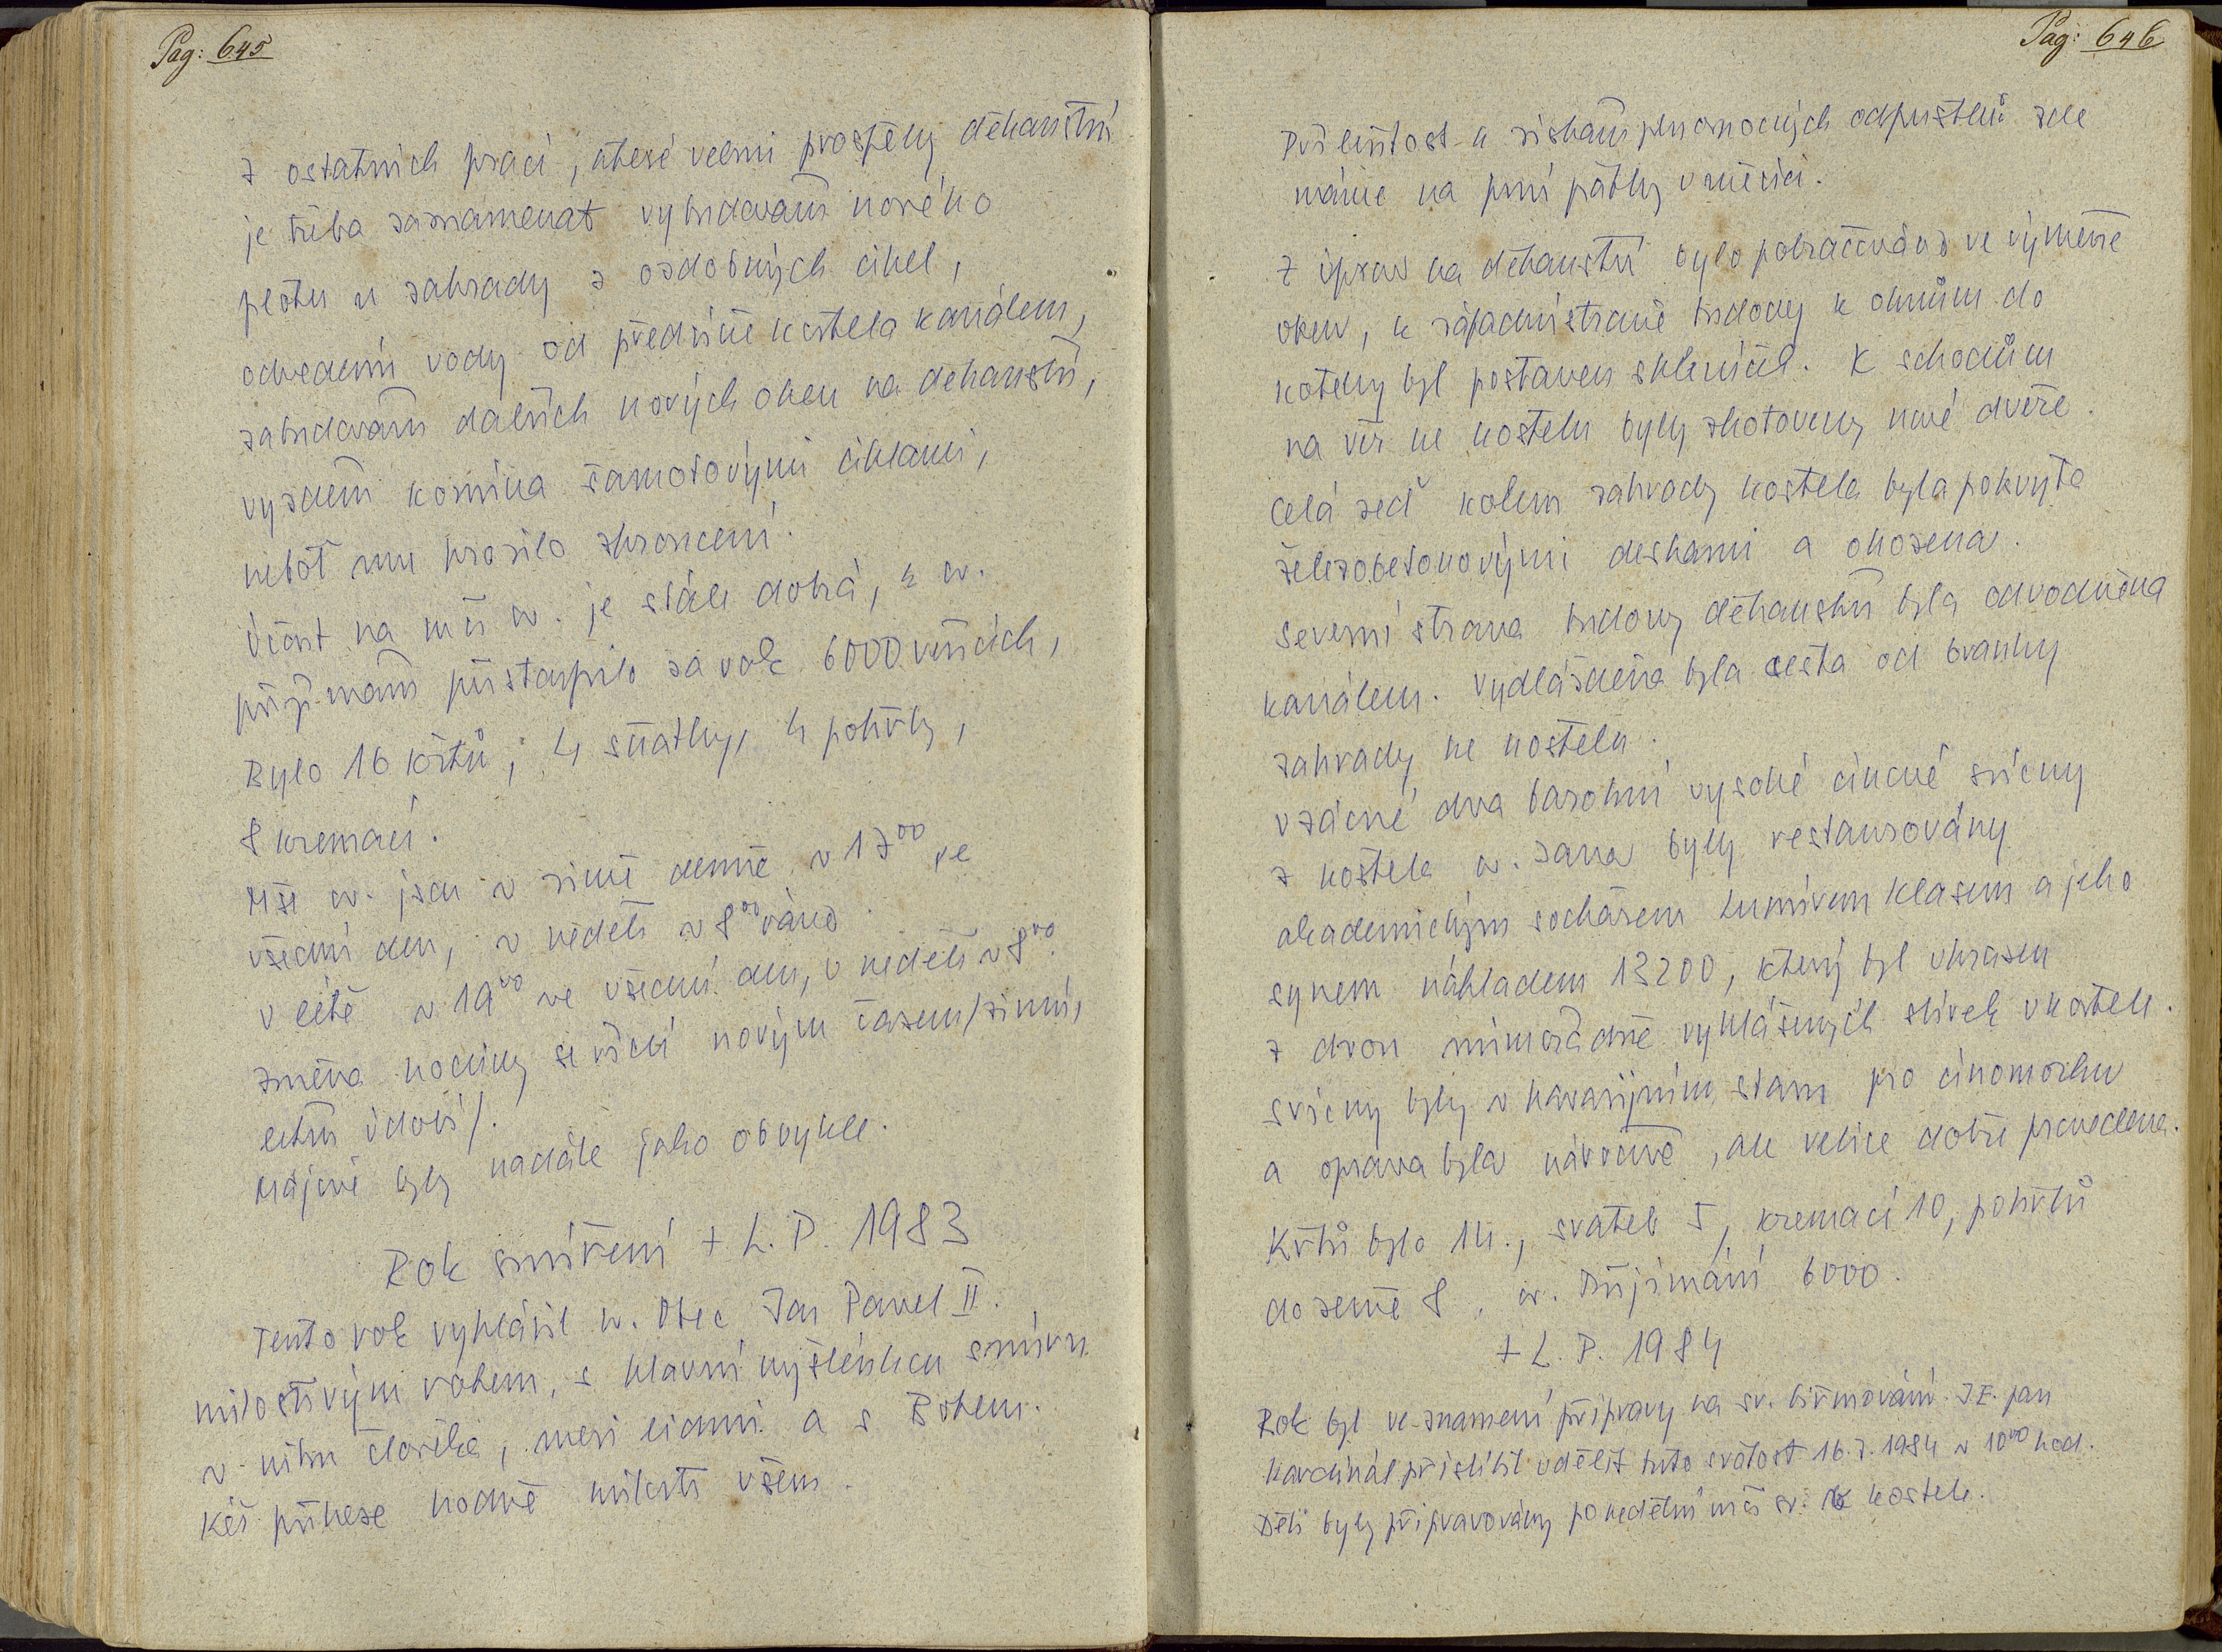 Pag: 645
z ostatních prací, které velmi prospěly děkanství
je třeba zaznamenat vybudování nového
plotu u zahrady z ozdobných cihel,
odvedení vody od předsíně kostela kanálem,
zabudování dalších nových oken na děkanství,
vyzdění komína šamotovými cihlami,
neboť mu hrozilo zhroucení.
Účast na mši sv. je stále dobrá, k sv.
přijímání přistoupilo za rok 6000 věřících,
Bylo 16 křtů, 4 sňatky, 4 pohřby,
8 kremací.
Mše sv. jsou v zimě denně v 17⁰⁰ ve
všední den, v neděli v 8⁰⁰ ráno.
v létě v 19⁰⁰ ve všední den, v neděli v 8⁰⁰.
změna hodiny se řídí novým časem /zimní,
letní údobí/.
Májové byly nadále jako obvykle.
Rok smíření + L. P. 1983
Tento rok vyhlásil sv. Otec Jan Pavel II.
milostivým rokem, s hlavní myšlenkou smíru
v nitru člověka, mezi lidmi a s Bohem.
Kéž přinese hodně milosti všem.
Pag: 646
Příležitost k získání plnomocných odpustků zde
máme na první pátky v měsíci.
Z úprav na děkanství bylo pokračováno ve výměně
oken, k západní straně budovy k oknům do
kotelny byl postaven skleníček. K schodům
na věž ke kostelu byly zhotoveny nové dveře.
Celá zeď kolem zahrady kostela byla pokryta
železobetonovými deskami a ohozena.
Severní strana budovy děkanství byla odvodněna
kanálem. Vydlážděna byla cesta od branky
zahrady ke kostelu.
Vzácné dva barokní vysoké cínové svícny
z kostela sv. Jana byly restaurovány
akademickým sochařem Lumírem Klasem a jeho
synem nákladem 13200, který byl uhrazen
z dvou mimořádně vyhlášených sbírek v kostele.
Svícny byly v havarijním stavu pro cínomorku
a oprava byla náročně, ale velice dobře provedena.
Křtů bylo 14., svateb 5, kremací 10, pohřbů
do země 8, sv. Přijímání 6000.
+ L. P. 1984
Rok byl ve znamení přípravy na sv. biřmování. J.E. pan
kardinál přislíbil udělit tuto svátost 16.7.1984 v 10⁰⁰ hod.
Děti byly připravovány po nedělní mši sv. v kostele.